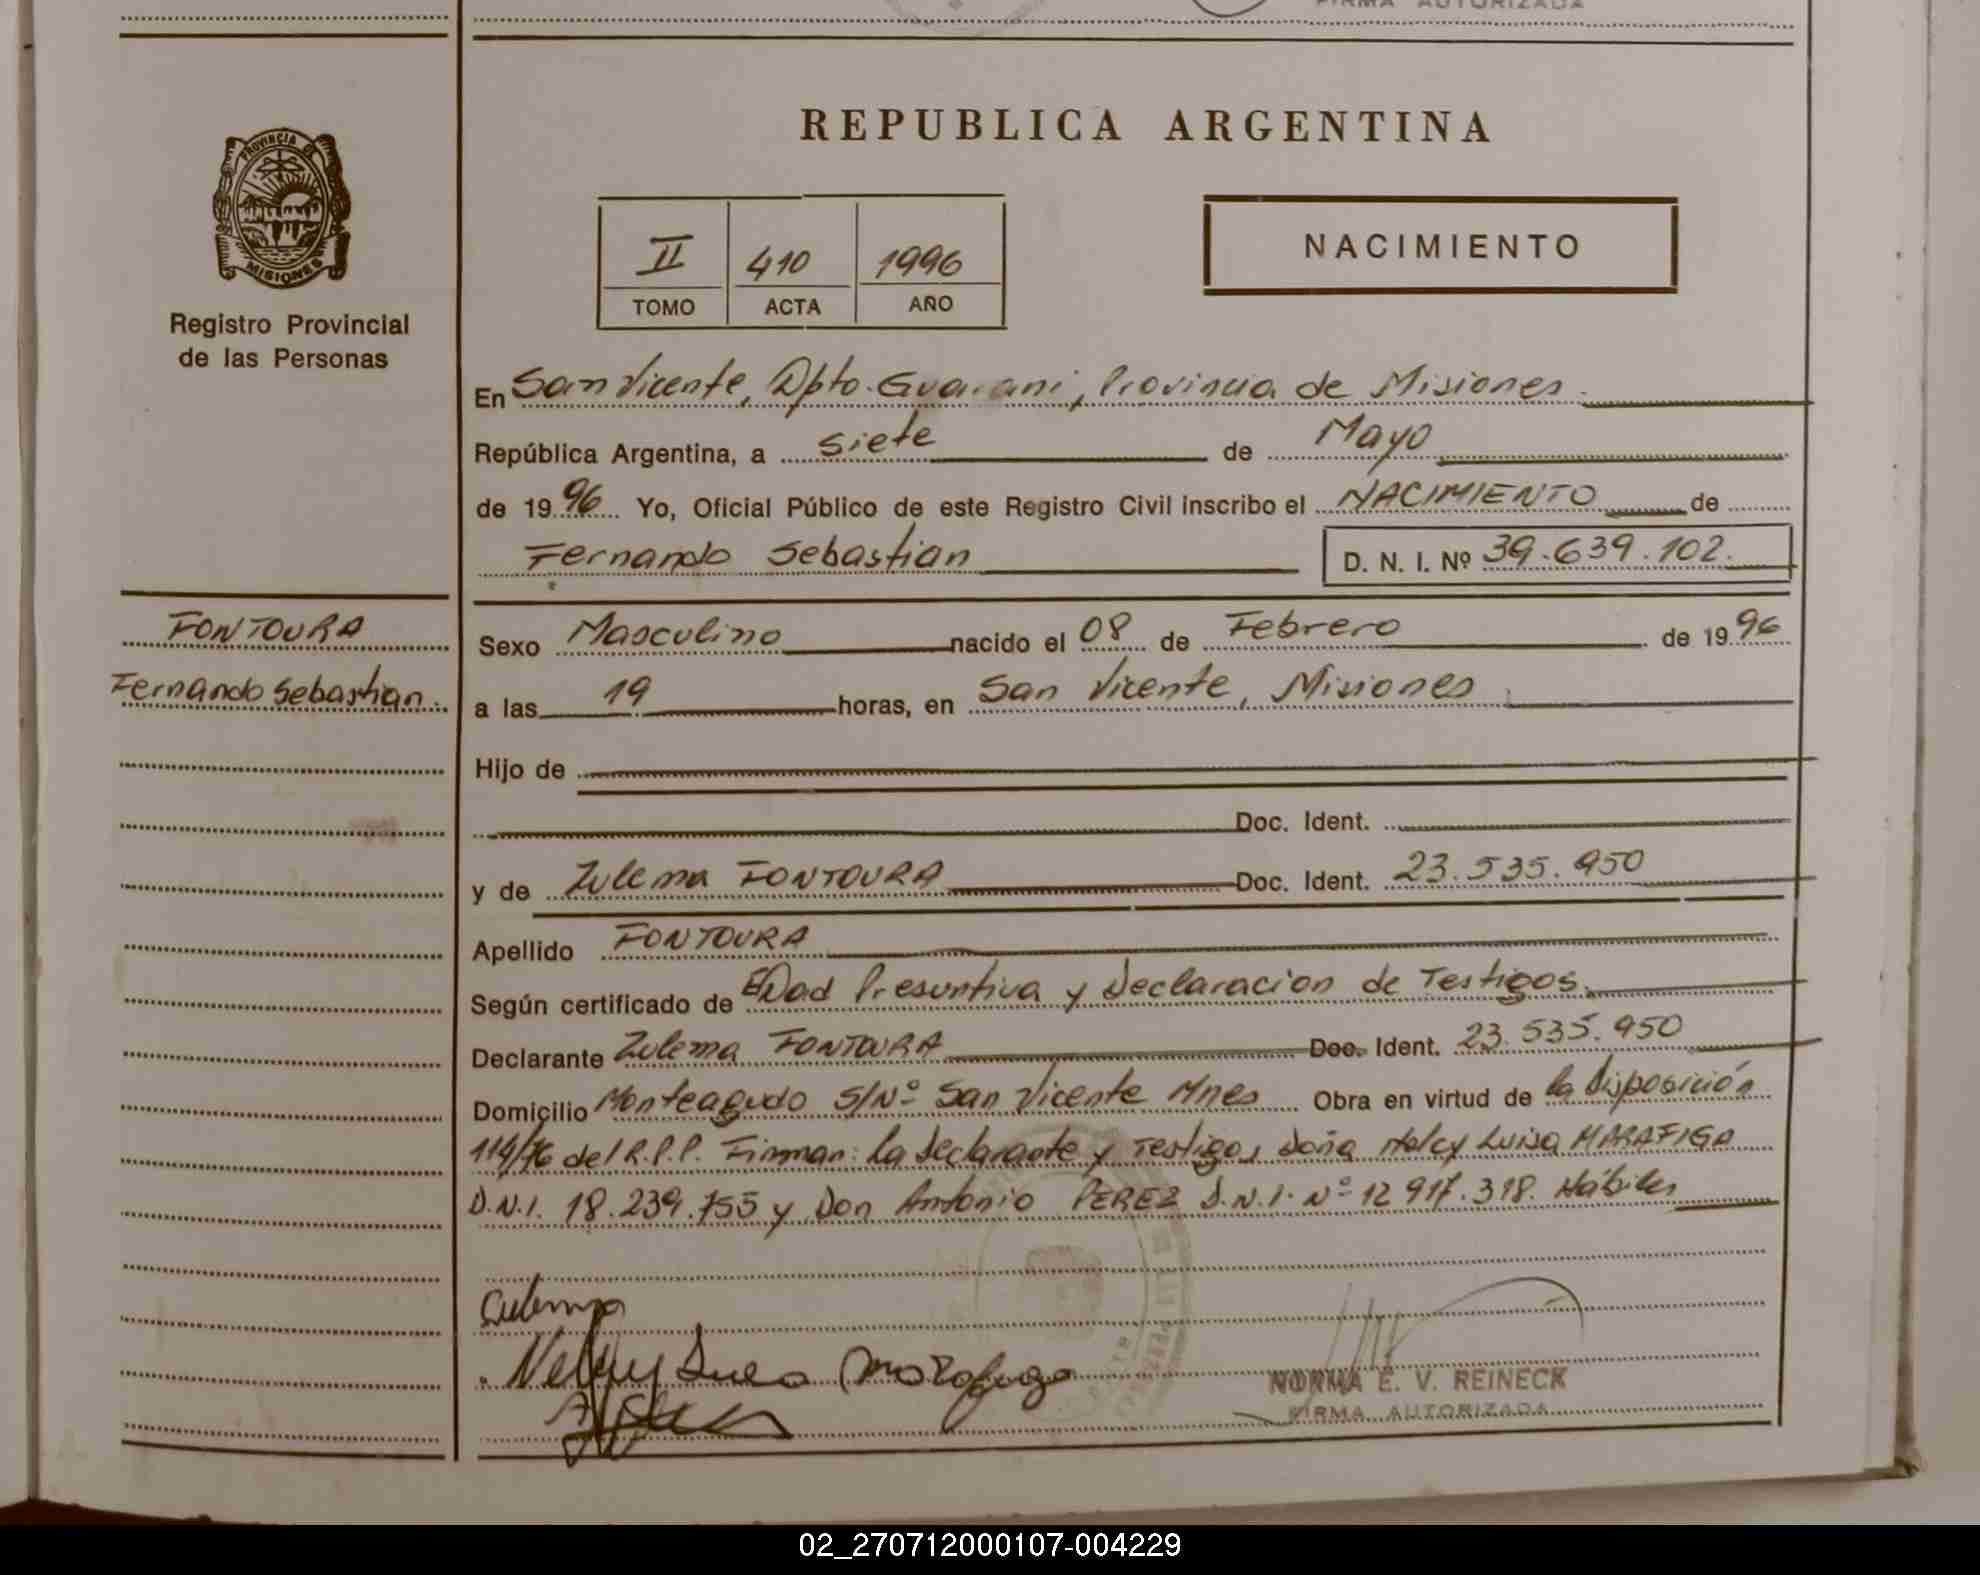 FIRMA AUTORIZADA
REPUBLICA ARGENTINA
PROVINCIA DE
MISIONES
Registro Provincial
de las Personas
II 410 1996
TOMO ACTA AÑO
NACIMIENTO
En San Vicente, Dpto. Guarani, Provincia de Misiones
República Argentina, a siete de Mayo
de 1996 Yo, Oficial Público de este Registro Civil inscribo el NACIMIENTO de
Fernando Sebastian D. N. I. Nº 39.639.102.
FONTOURA
Fernando Sebastian.
Sexo Masculino nacido el 08 de Febrero de 1996
a las 19 horas, en San Vicente, Misiones
Hijo de
Doc. Ident.
y de Zulema FONTOURA Doc. Ident. 23.535.950
Apellido FONTOURA
Según certificado de EDad Presuntiva y Declaracion de Testigos.
Declarante Zulema FONTOURA Doc. Ident. 23.535.950
Domicilio Monteagudo S/Nº San Vicente Mnes Obra en virtud de la Disposición
114/76 del R.P.P. Firman: la Declarante y Testigos Doña Luisa MARAFIGA
D.N.I. 18.239.755 y Don Antonio PEREZ D.N.I. Nº 12 917.318. Hábiles
NORMA E. V. REINECK
FIRMA AUTORIZADA
02_270712000107-004229